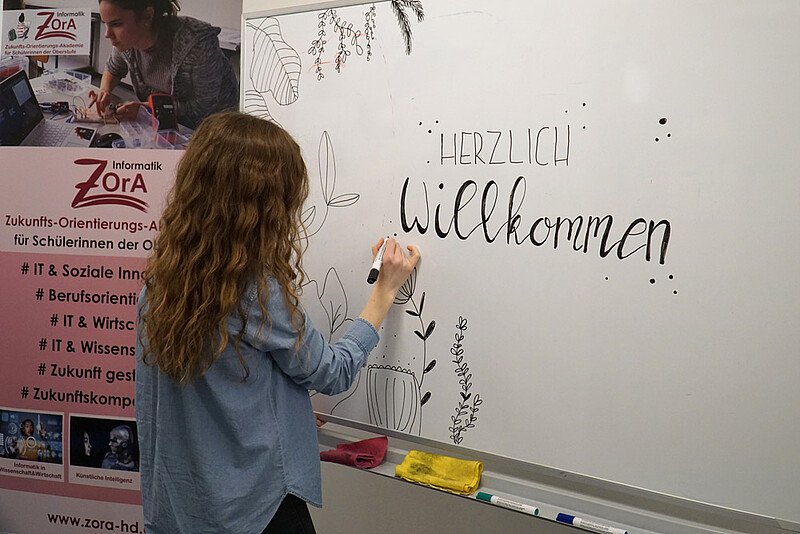 Informatik
ZOrA
Zukunfts-Orientierungs-Akademie
für Schülerinnen der Oberstufe
Informatik
ZOrA
Zukunfts-Orientierungs-
für Schülerinnen der
# IT & Soziale
#
# IT &
# IT &
# Zukunft
#
Informatik in
Wissenschaft&Wirtschaft
Künstliche Intelligenz
www.zora-hd.
HERZLICH
Willkommen